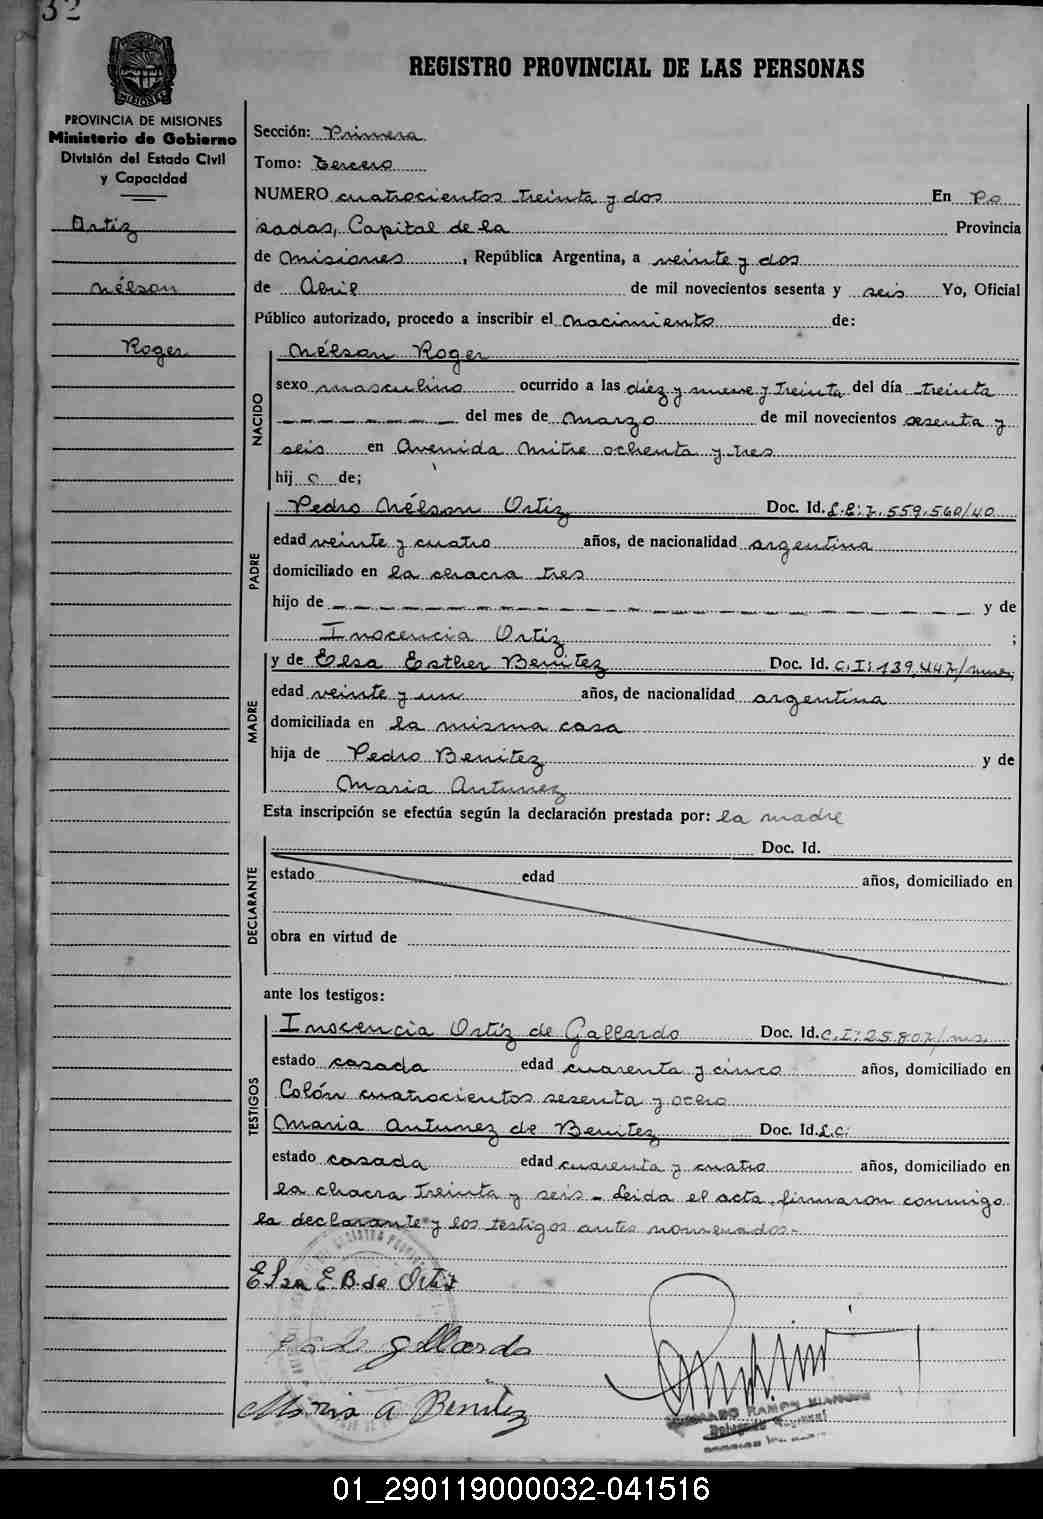 32
MISIONES
PROVINCIA DE MISIONES
Ministerio de Gobierno
División del Estado Civil
y Capacidad
Ortiz
Nélson
Roger
REGISTRO PROVINCIAL DE LAS PERSONAS
Sección: Primera
Tomo: tercero
NUMERO cuatrocientos treinta y dos En Po
sadas, Capital de la Provincia
de Misiones, República Argentina, a veinte y dos
de Abril de mil novecientos sesenta y seis Yo, Oficial
Público autorizado, procedo a inscribir el Nacimiento de:
NACIDO
Nélson Roger
sexo masculino ocurrido a las diez y nueve y treinta del día treinta
del mes de Marzo de mil novecientos sesenta y
seis en Avenida Mitre ochenta y tres
hij o de;
PADRE
Pedro Nélson Ortiz Doc. Id. L.E: 7.559.560/40
edad veinte y cuatro años, de nacionalidad argentina
domiciliado en la chacra tres
hijo de y de
Inocencia Ortiz ;
MADRE
y de Elsa Esther Benitez Doc. Id. C.I: 139.447/mnes,
edad veinte y un años, de nacionalidad argentina
domiciliada en la misma casa
hija de Pedro Benitez y de
Maria Antunez
Esta inscripción se efectúa según la declaración prestada por: la madre
DECLARANTE
Doc. Id.
estado edad años, domiciliado en
obra en virtud de
ante los testigos:
TESTIGOS
Inocencia Ortiz de Gallardo Doc. Id. C.I: 25.807/mns.
estado casada edad cuarenta y cinco años, domiciliado en
Colón cuatrocientos sesenta y ocho
Maria Antunez de Benitez Doc. Id. L.C:
estado casada edad cuarenta y cuatro años, domiciliado en
la chacra treinta y seis - Leida el acta, firmaron conmigo
la declarante y los testigos antes nomenados.-
Elsa E.B. de Ortiz
de Gallardo
Maria A Benitez
RAMON
01_290119000032-041516